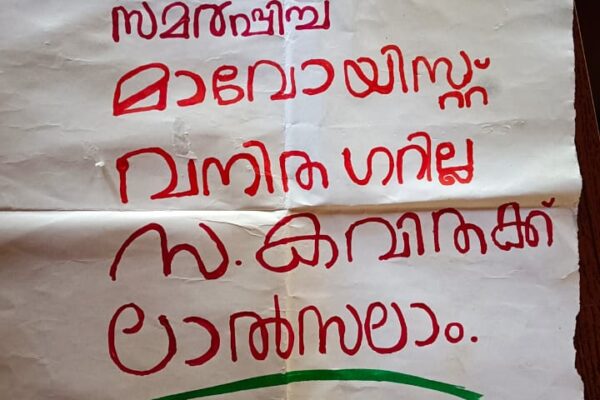 സമർപ്പിച്ച
മാവോയിസ്റ്റ്
വനിത ഗറില്ല
സ. കവിതക്ക്
ലാൽസലാം.